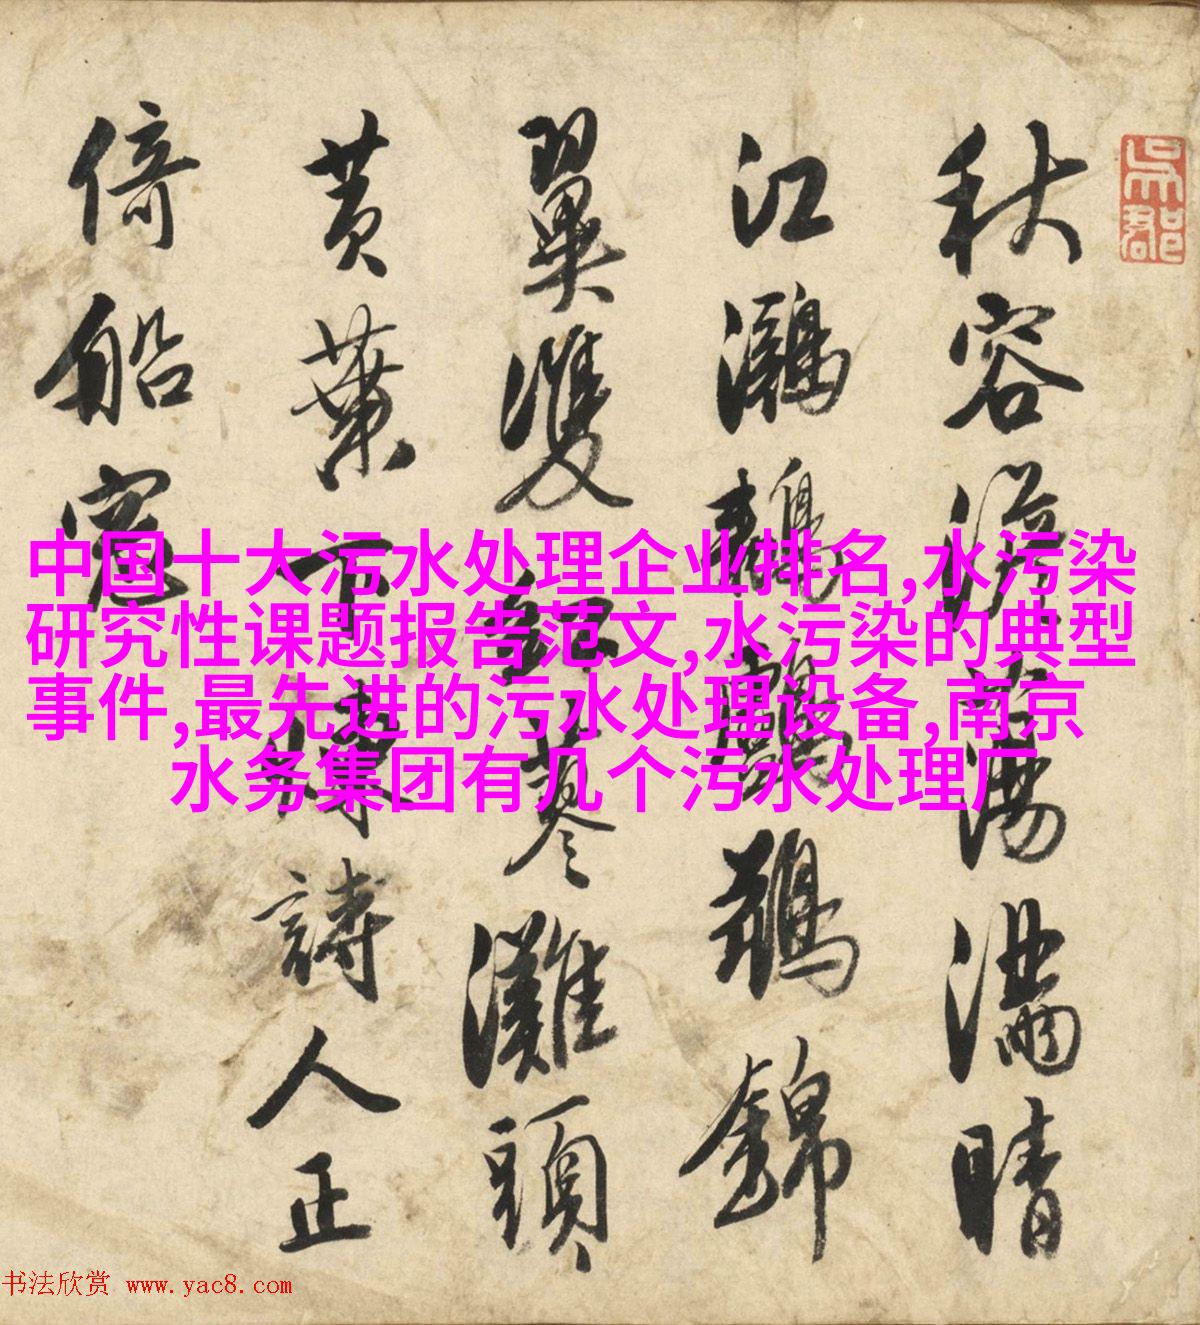 吳郡
秋容蕩滿晴
江鸂鶒鸕鶿錦
翼雙紅蓼灘頭
黃葉下詩人正
倚船窓
中国十大污水处理企业排名,水污染
研究性课题报告范文,水污染的典型
事件,最先进的污水处理设备,南京
水务集团有几个污水处理厂
书法欣赏 www.yac8.com